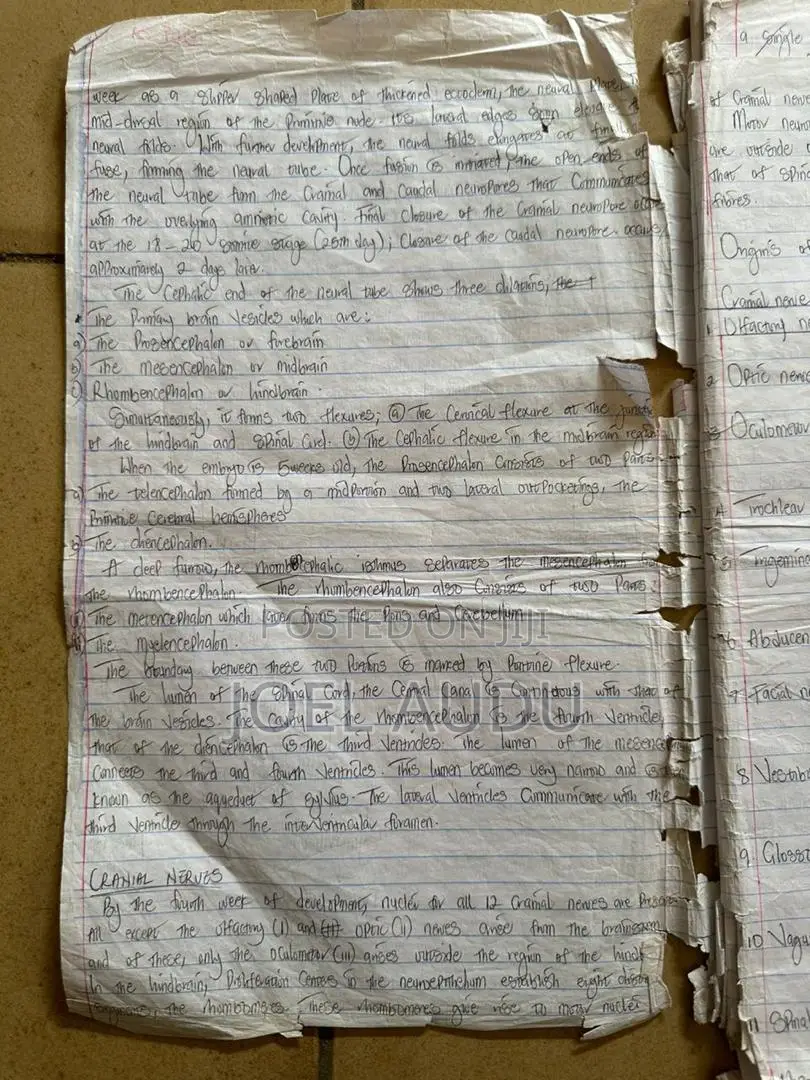 week as a slipper shaped plate of thickened ectoderm, the neural plate
mid-dorsal region of the primitive node. Its lateral edges soon elevate
neural folds. With further development, the neural folds elongates at
fuse, forming the neural tube. Once fusion is initiated, the open ends of
the neural tube form the Cranial and Caudal neuropores that Communicates
with the overlying amniotic cavity. Final closure of the Cranial neuropore
at the 18-20 somite stage (25th day); Closure of the caudal neuropore occurs
approximately 2 days late.
The Cephalic end of the neural tube shows three dilations,
* The Primary brain Vesicles which are:
a) The Prosencephalon or forebrain
b) The mesencephalon or midbrain
c) Rhombencephalon or hindbrain.
Simultaneously, it forms two flexures; (a) The Cervical flexure at the
of the hindbrain and spinal Cord. (b) The Cephalic flexure in the midbrain region
When the embryo is 5 weeks old, the Prosencephalon Consists of two Parts.
a) The telencephalon formed by a midportion and two lateral outpocketings, the
Primitive Cerebral hemispheres
b) The diencephalon.
A deep furrow, the isthmus separates the mesencephalon
the rhombencephalon. The rhumbencephalon also Consists of two Parts:
The metencephalon which later forms the Pons and Cerebellum
The myelencephalon.
The boundary between these two Portions is marked by Pontine flexure.
The lumen of the spinal Cord, the Central Canal is Continous with that of
the brain Vesicles. The Cavity of the rhombencephalon is the fourth Ventricle,
that of the diencephalon is the third Ventricles. The lumen of the
Connects the third and fourth Ventricles. This lumen becomes very narrow and is
known as the aqueduct of sylvius. The lateral Ventricles Communicate with the
third Ventricle through the interVentricular foramen.
CRANIAL NERVES
By the fourth week of development, nuclei for all 12 Cranial nerves are
All except the Olfactory (I) and optic (II) nerves arise from the brainstem
and of these, only the oculomotor (III) arises outside the region of the
In the hindbrain, Proliferation Centres in the neuroepithelium establish eight
segments, the rhombomeres. These rhombomeres give rise to motor nuclei
POSTED ON JIJI
JOEL AUDU
a single
of Cranial
Motor
are outside
that of
fibres.
Origins of
Cranial nerve
1 Olfactory
2 Optic nerve
3 Oculomotor
4 Trochlear
5
6 Abducen
7 Facial
8
9
10
11 Spinal